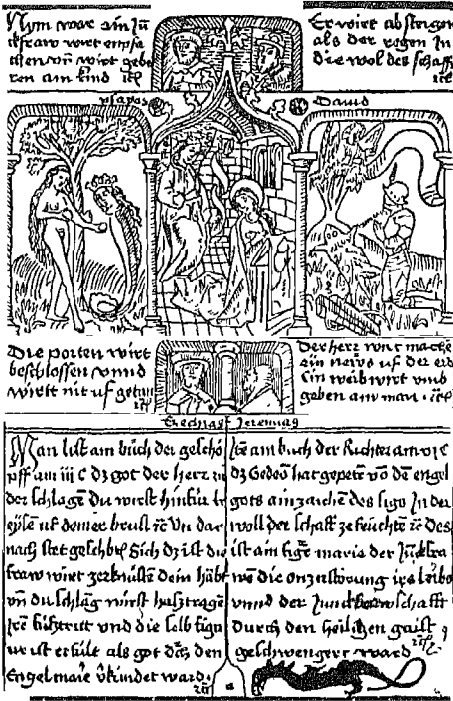 Nym war ain Jū
ckfraw wirt empfa
chen vn̄ wirt gebe
ren ain kind ꝛc̄
Er wirt absteigen
als der regen In
die wol des schaff
ꝛc̄
ysayas
Dauid
Die porten wirt
beschlossen vnnd
wirtt nit uf getun
ꝛc̄
Der herr wirt mache
ein news uf der erd
Ein weib wirt vmb
geben am man ꝛc̄
Ezechiel Jeremias
Man list am bůch der geschö
pff am iii C dz got der herr zu
der schlagē Du wirst hinfür
uf deiner brust ꝛc̄ Vn dar
nach stet geschbē Sich dz ist die
fraw wirt zerknüste dein häbt
vn̄ du schlāg wirst
vnd die selb figu
ur ist erfült als got dē den
Engel maie v̄kindet ward
ꝛc̄
Itē am buch der Richter am vi C
dz Gedeō hat gepetē vō dē engel
gots ain zaichē des sigs In der
woll der schaff ze feüchte ꝛc̄ des
ist ain figē maria der Jūckfra
wē die on zerstörung irs leibs
vnnd der Junckfrawschafft
durch den heiligen gaist
geschwengert ward
ꝛc̄
a